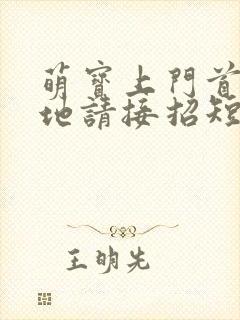 萌寶上門首
地請接招短
王明先